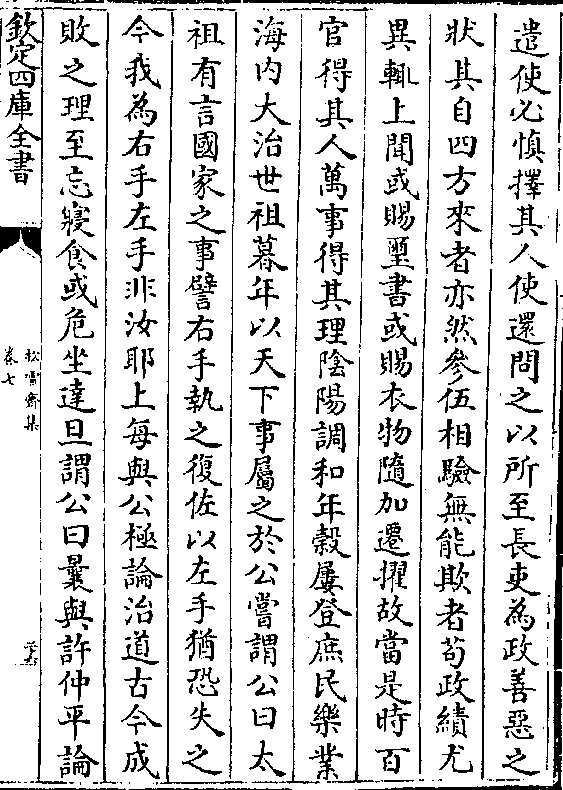 遣使必慎擇其人使還問之以所至長吏為政善惡之
狀其自四方來者亦然參伍相驗無能欺者苟政績尤
異輒上聞或賜璽書或賜衣物隨加遷擢故當是時百
官得其人萬事得其理陰陽調和年穀屢登庶民樂業
海内大治世祖暮年以天下事屬之於公嘗謂公曰太
祖有言國家之事譬右手執之復佐以左手猶恐失之
今我為右手左手非汝耶上每與公極論治道古今成
敗之理至忘寢食或危坐達旦謂公曰曩與許仲平論
欽定四庫全書
松雪齋集
卷七